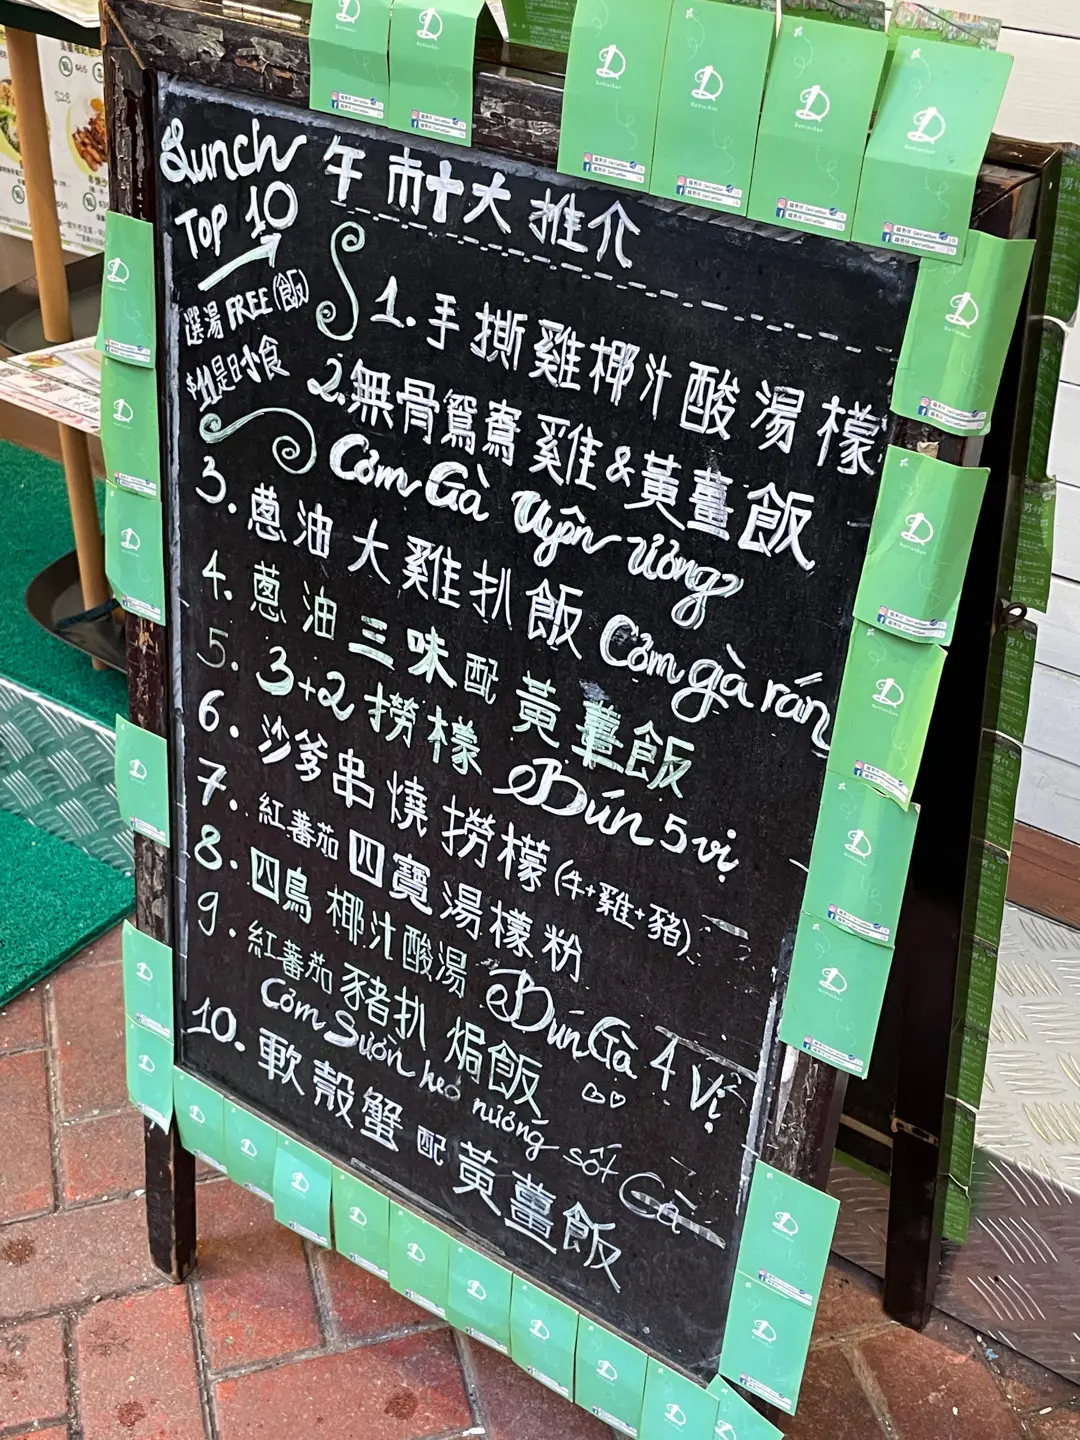 Lunch
Top 10
午市十大推介
選湯 FREE (飯)
$11是日小食
1. 手撕雞椰汁酸湯檬
2. 無骨鴛鴦雞&黃薑飯
Cơm Gà Uyên ương
3. 蔥油大雞扒飯 Cơm gà rán
4. 蔥油三味配黃薑飯
5. 3+2撈檬 Bún 5 vị
6. 沙爹串燒撈檬(牛+雞+豬)
7. 紅蕃茄四寶湯檬粉
8. 四鳥椰汁酸湯 Bún Gà 4 Vị
9. 紅蕃茄豬扒焗飯
Cơm Sườn heo nướng sốt Cà
10. 軟殼蟹配黃薑飯